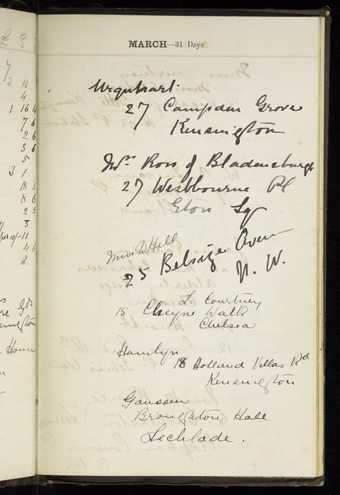 MARCH—31 Days
Urquhart
27 Campden Grove
Kensington
Mrs Ross of Bladensburg
27 Westbourne Pl
Eton Sq
Miss O. Hill
25 Belsize Aven
N. W.
Ld Courtney
15 Cheyne Walk
Chelsea
Hamlyn
18 Holland Villas Rd
Kensington
Gaussen
Broughton Hall
Lechlade.